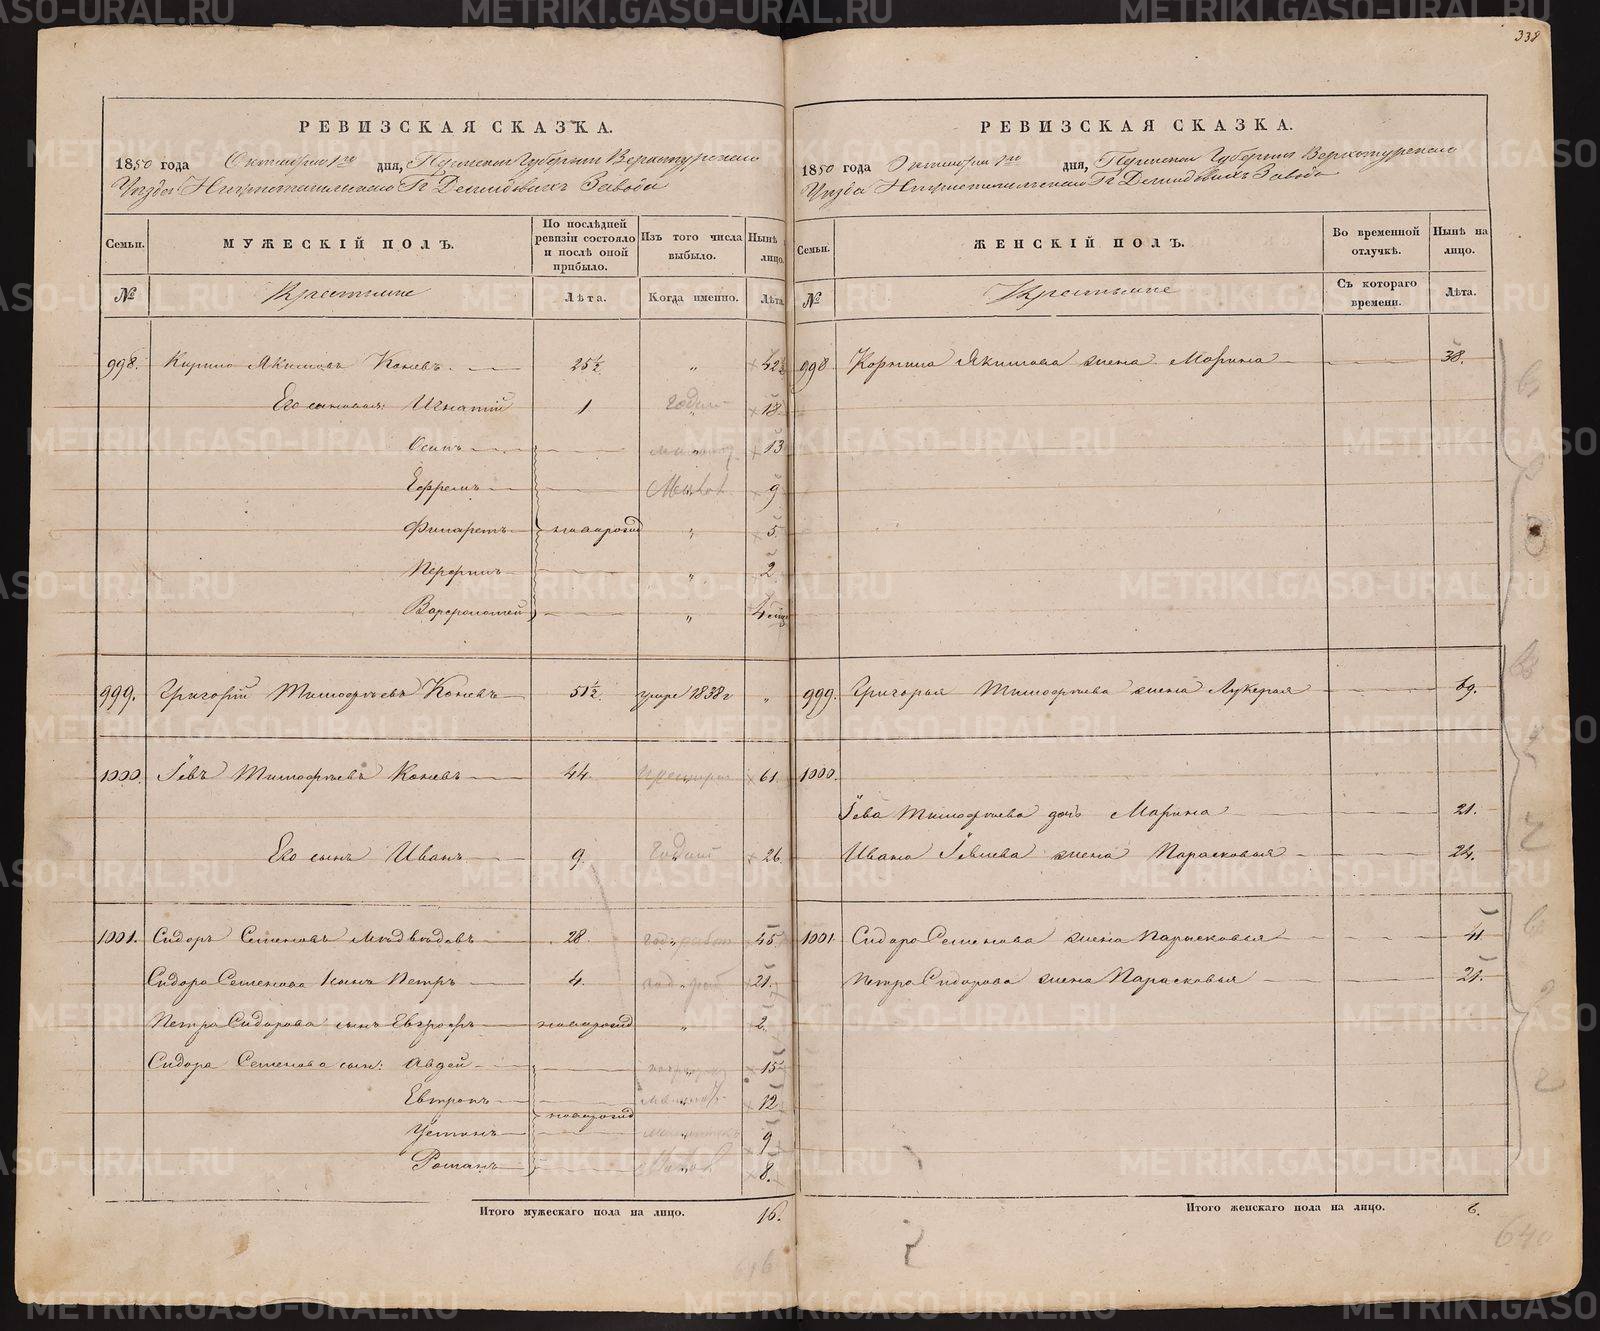 338
РЕВИЗСКАЯ СКАЗКА.
1850 года Октября 1го дня, Пермской Губернии Верхотурскаго
Уезда Нижнетагильскаго Гг Демидовыхъ Завода
Семьи. МУЖЕСКІЙ ПОЛЪ. По послѣдней ревизіи состояло и послѣ оной прибыло. Изъ того числа выбыло. Нынѣ на лицо.
№ Крестьяне Лѣта. Когда именно. Лѣта.
998. Якимовъ Коневъ 25½ " 42½
Его сыновья: Игнатій 1 18
Осипъ 13
Ефремъ 9
Филаретъ новорожд " 5
Перфилъ " 2
Варфоломей " 4 мѣс
999. Григорій Тимофѣевъ Коневъ 51½ умре 1838г "
1000. Іевъ Тимофѣевъ Коневъ 44. 61
Его сынъ Иванъ 9. 26.
1001. Сидоръ Семеновъ Медвѣдевъ 28. 45
Сидора Семенова 1 сынъ Петръ 4. 21.
Петра Сидорова сынъ Евграфъ новорожд " 2.
Сидора Семенова сын: Авдей 15
Евтропъ 12
новорожд
Устинъ 9
Романъ 8.
Итого мужескаго пола на лицо. 16.
РЕВИЗСКАЯ СКАЗКА.
1850 года Октября 1го дня, Пермской Губернии Верхотурскаго
Уезда Нижнетагильскаго Гг Демидовыхъ Завода
Семьи. ЖЕНСКІЙ ПОЛЪ. Во временной отлучкѣ. Нынѣ на лицо.
№ Крестьяне Съ котораго времени. Лѣта.
998 Корнила Якимова жена Марина 38.
999. Григорья Тимофѣева жена Лукерья 69.
1000.
Іева Тимофѣева дочь Марина 21.
Ивана Іевлева жена Парасковья 24.
1001 Сидора Семенова жена Парасковья 41
Петра Сидорова жена Парасковья 21.
Итого женскаго пола на лицо. 6.
640
METRIKI.GASO-URAL.RU